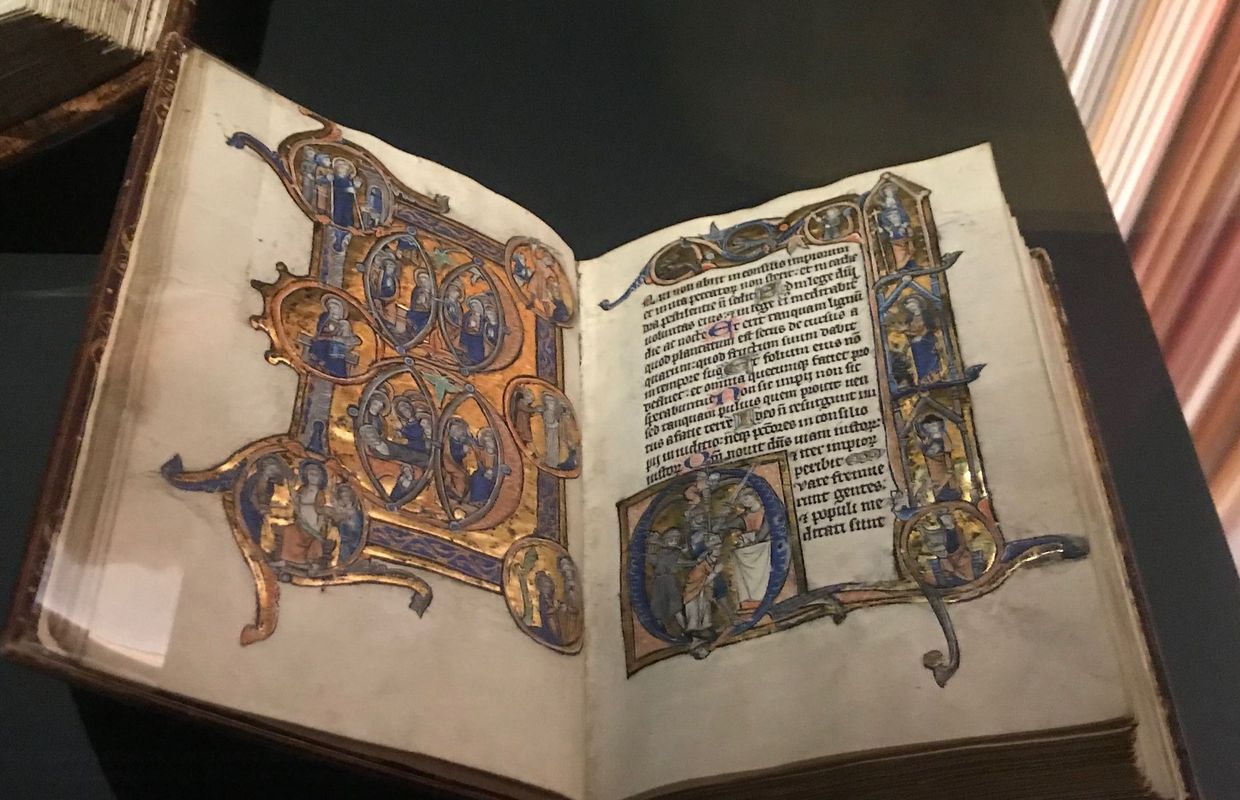 B
ui non abijt in consilio impiorum
et in uia peccator non stetit: et in cathe
dra pestilentie n̄ sedit Sed in lege dn̄i
uoluntas eius: et in lege ei meditabit̄
die ac nocte Et erit tanquam lignū
quod plantatum est secus decursus a
quarum: quod fructum suum dabit
in tempore suo Et folium eius nō
defluet: et omnia quecumq; faciet pro
sperabuntur Non sic impij non sic
sed tanquam puluis quem proicit uen
tus a facie terre Ideo n̄ resurgunt im
pij in iuditio: neq; pctōres in consilio
iustor Qm̄ nouit dn̄s uiam iustor:
⁊ iter impior
peribit
Q vare fremue
runt gentes:
⁊ populi me
ditati sunt